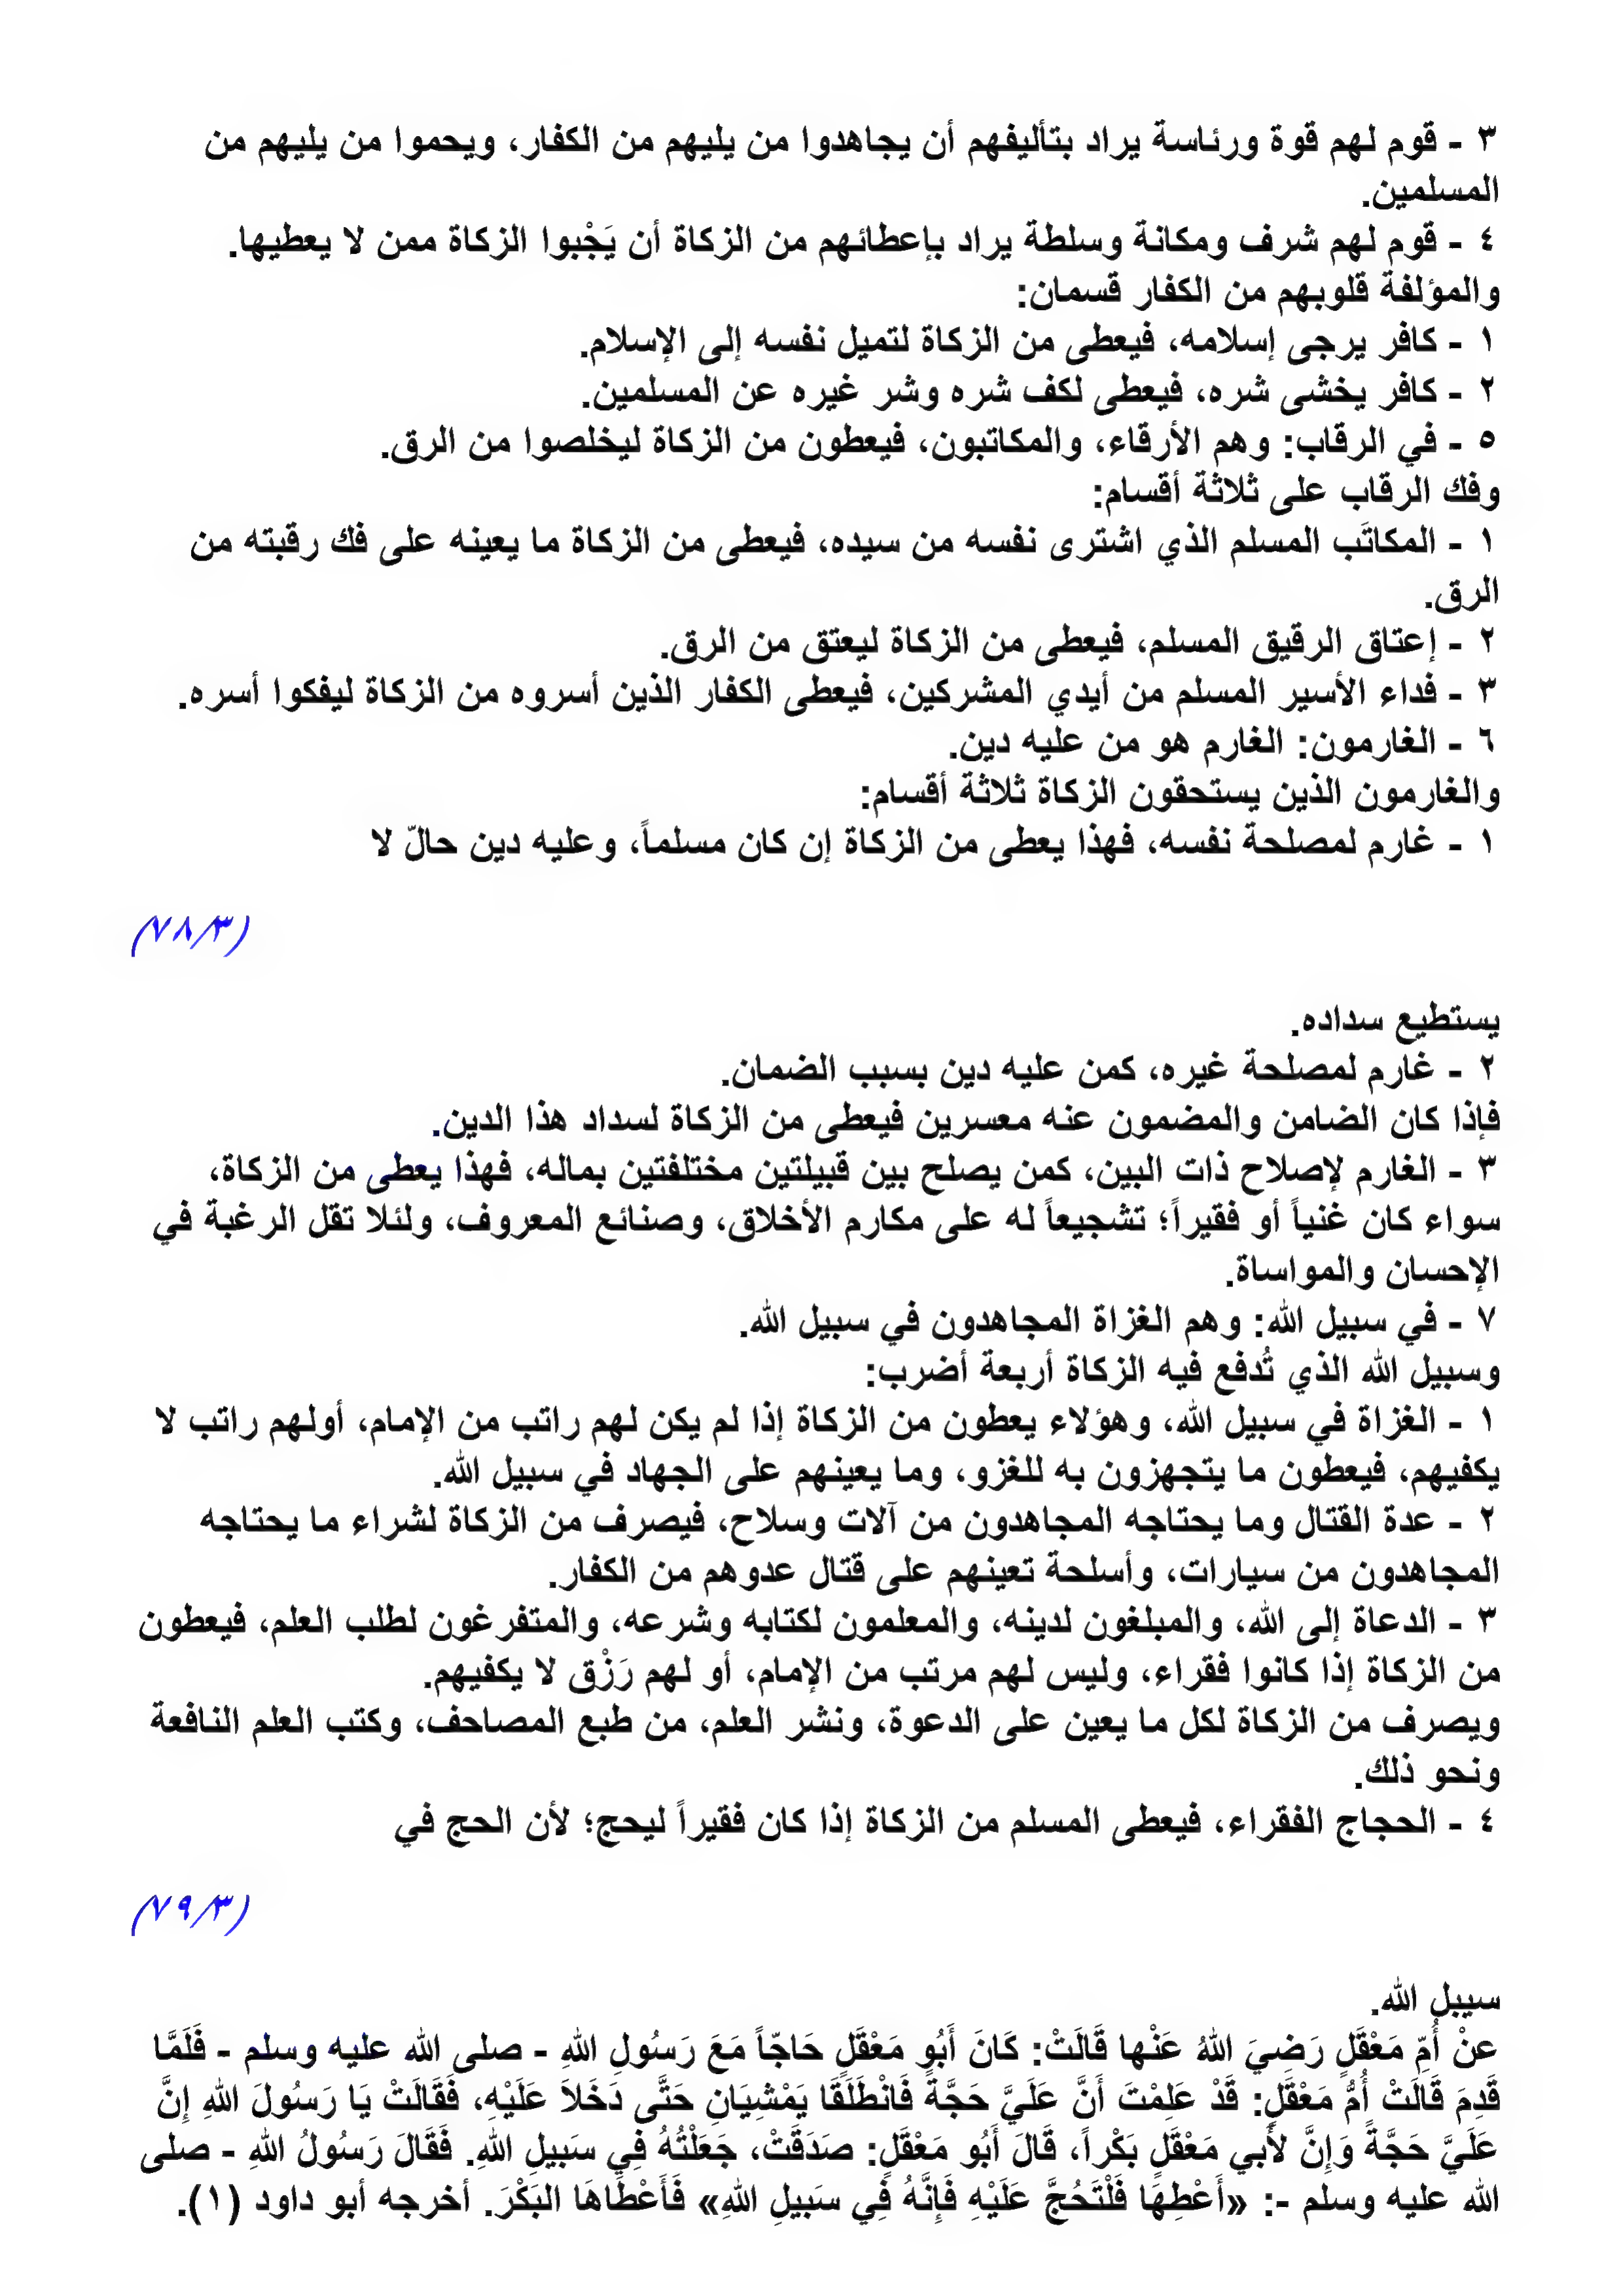 ٣ - قوم لهم قوة ورئاسة يراد بتأليفهم أن يجاهدوا من يليهم من الكفار، ويحموا من يليهم من
المسلمين.
٤ - قوم لهم شرف ومكانة وسلطة يراد بإعطائهم من الزكاة أن يَجْبوا الزكاة ممن لا يعطيها.
والمؤلفة قلوبهم من الكفار قسمان:
١ - كافر يرجى إسلامه، فيعطى من الزكاة لتميل نفسه إلى الإسلام.
٢ - كافر يخشى شره، فيعطى لكف شره وشر غيره عن المسلمين.
٥ - في الرقاب: وهم الأرقاء، والمكاتبون، فيعطون من الزكاة ليخلصوا من الرق.
وفك الرقاب على ثلاثة أقسام:
١ - المكاتَب المسلم الذي اشترى نفسه من سيده، فيعطى من الزكاة ما يعينه على فك رقبته من
الرق.
٢ - إعتاق الرقيق المسلم، فيعطى من الزكاة ليعتق من الرق.
٣ - فداء الأسير المسلم من أيدي المشركين، فيعطى الكفار الذين أسروه من الزكاة ليفكوا أسره.
٦ - الغارمون: الغارم هو من عليه دين.
والغارمون الذين يستحقون الزكاة ثلاثة أقسام:
١ - غارم لمصلحة نفسه، فهذا يعطى من الزكاة إن كان مسلماً، وعليه دين حالّ لا
(٧٨/٣)
يستطيع سداده.
٢ - غارم لمصلحة غيره، كمن عليه دين بسبب الضمان.
فإذا كان الضامن والمضمون عنه معسرين فيعطى من الزكاة لسداد هذا الدين.
٣ - الغارم لإصلاح ذات البين، كمن يصلح بين قبيلتين مختلفتين بماله، فهذا يعطى من الزكاة،
سواء كان غنياً أو فقيراً؛ تشجيعاً له على مكارم الأخلاق، وصنائع المعروف، ولئلا تقل الرغبة في
الإحسان والمواساة.
٧ - في سبيل الله: وهم الغزاة المجاهدون في سبيل الله.
وسبيل الله الذي تُدفع فيه الزكاة أربعة أضرب:
١ - الغزاة في سبيل الله، وهؤلاء يعطون من الزكاة إذا لم يكن لهم راتب من الإمام، أولهم راتب لا
يكفيهم، فيعطون ما يتجهزون به للغزو، وما يعينهم على الجهاد في سبيل الله.
٢ - عدة القتال وما يحتاجه المجاهدون من آلات وسلاح، فيصرف من الزكاة لشراء ما يحتاجه
المجاهدون من سيارات، وأسلحة تعينهم على قتال عدوهم من الكفار.
٣ - الدعاة إلى الله، والمبلغون لدينه، والمعلمون لكتابه وشرعه، والمتفرغون لطلب العلم، فيعطون
من الزكاة إذا كانوا فقراء، وليس لهم مرتب من الإمام، أو لهم رَزْق لا يكفيهم.
ويصرف من الزكاة لكل ما يعين على الدعوة، ونشر العلم، من طبع المصاحف، وكتب العلم النافعة
ونحو ذلك.
٤ - الحجاج الفقراء، فيعطى المسلم من الزكاة إذا كان فقيراً ليحج؛ لأن الحج في
(٧٩/٣)
سبيل الله.
عنْ أُمِّ مَعْقَلٍ رَضِيَ اللهُ عَنْها قَالَتْ: كَانَ أَبُو مَعْقَلٍ حَاجّاً مَعَ رَسُولِ اللهِ - صلى الله عليه وسلم - فَلَمَّا
قَدِمَ قَالَتْ أُمُّ مَعْقَلٍ: قَدْ عَلِمْتَ أَنَّ عَلَيَّ حَجَّةً فَانْطَلَقَا يَمْشِيَانِ حَتَّى دَخَلاَ عَلَيْهِ، فَقَالَتْ يَا رَسُولَ اللهِ إِنَّ
عَلَيَّ حَجَّةً وَإِنَّ لأَبي مَعْقَلٍ بَكْراً، قَالَ أَبُو مَعْقَلٍ: صَدَقَتْ، جَعَلْتُهُ فِي سَبِيلِ اللهِ. فَقَالَ رَسُولُ اللهِ - صلى
الله عليه وسلم -: «أَعْطِهَا فَلْتَحُجَّ عَلَيْهِ فَإِنَّهُ فِي سَبِيلِ اللهِ» فَأَعْطَاهَا البَكْرَ. أخرجه أبو داود (١).